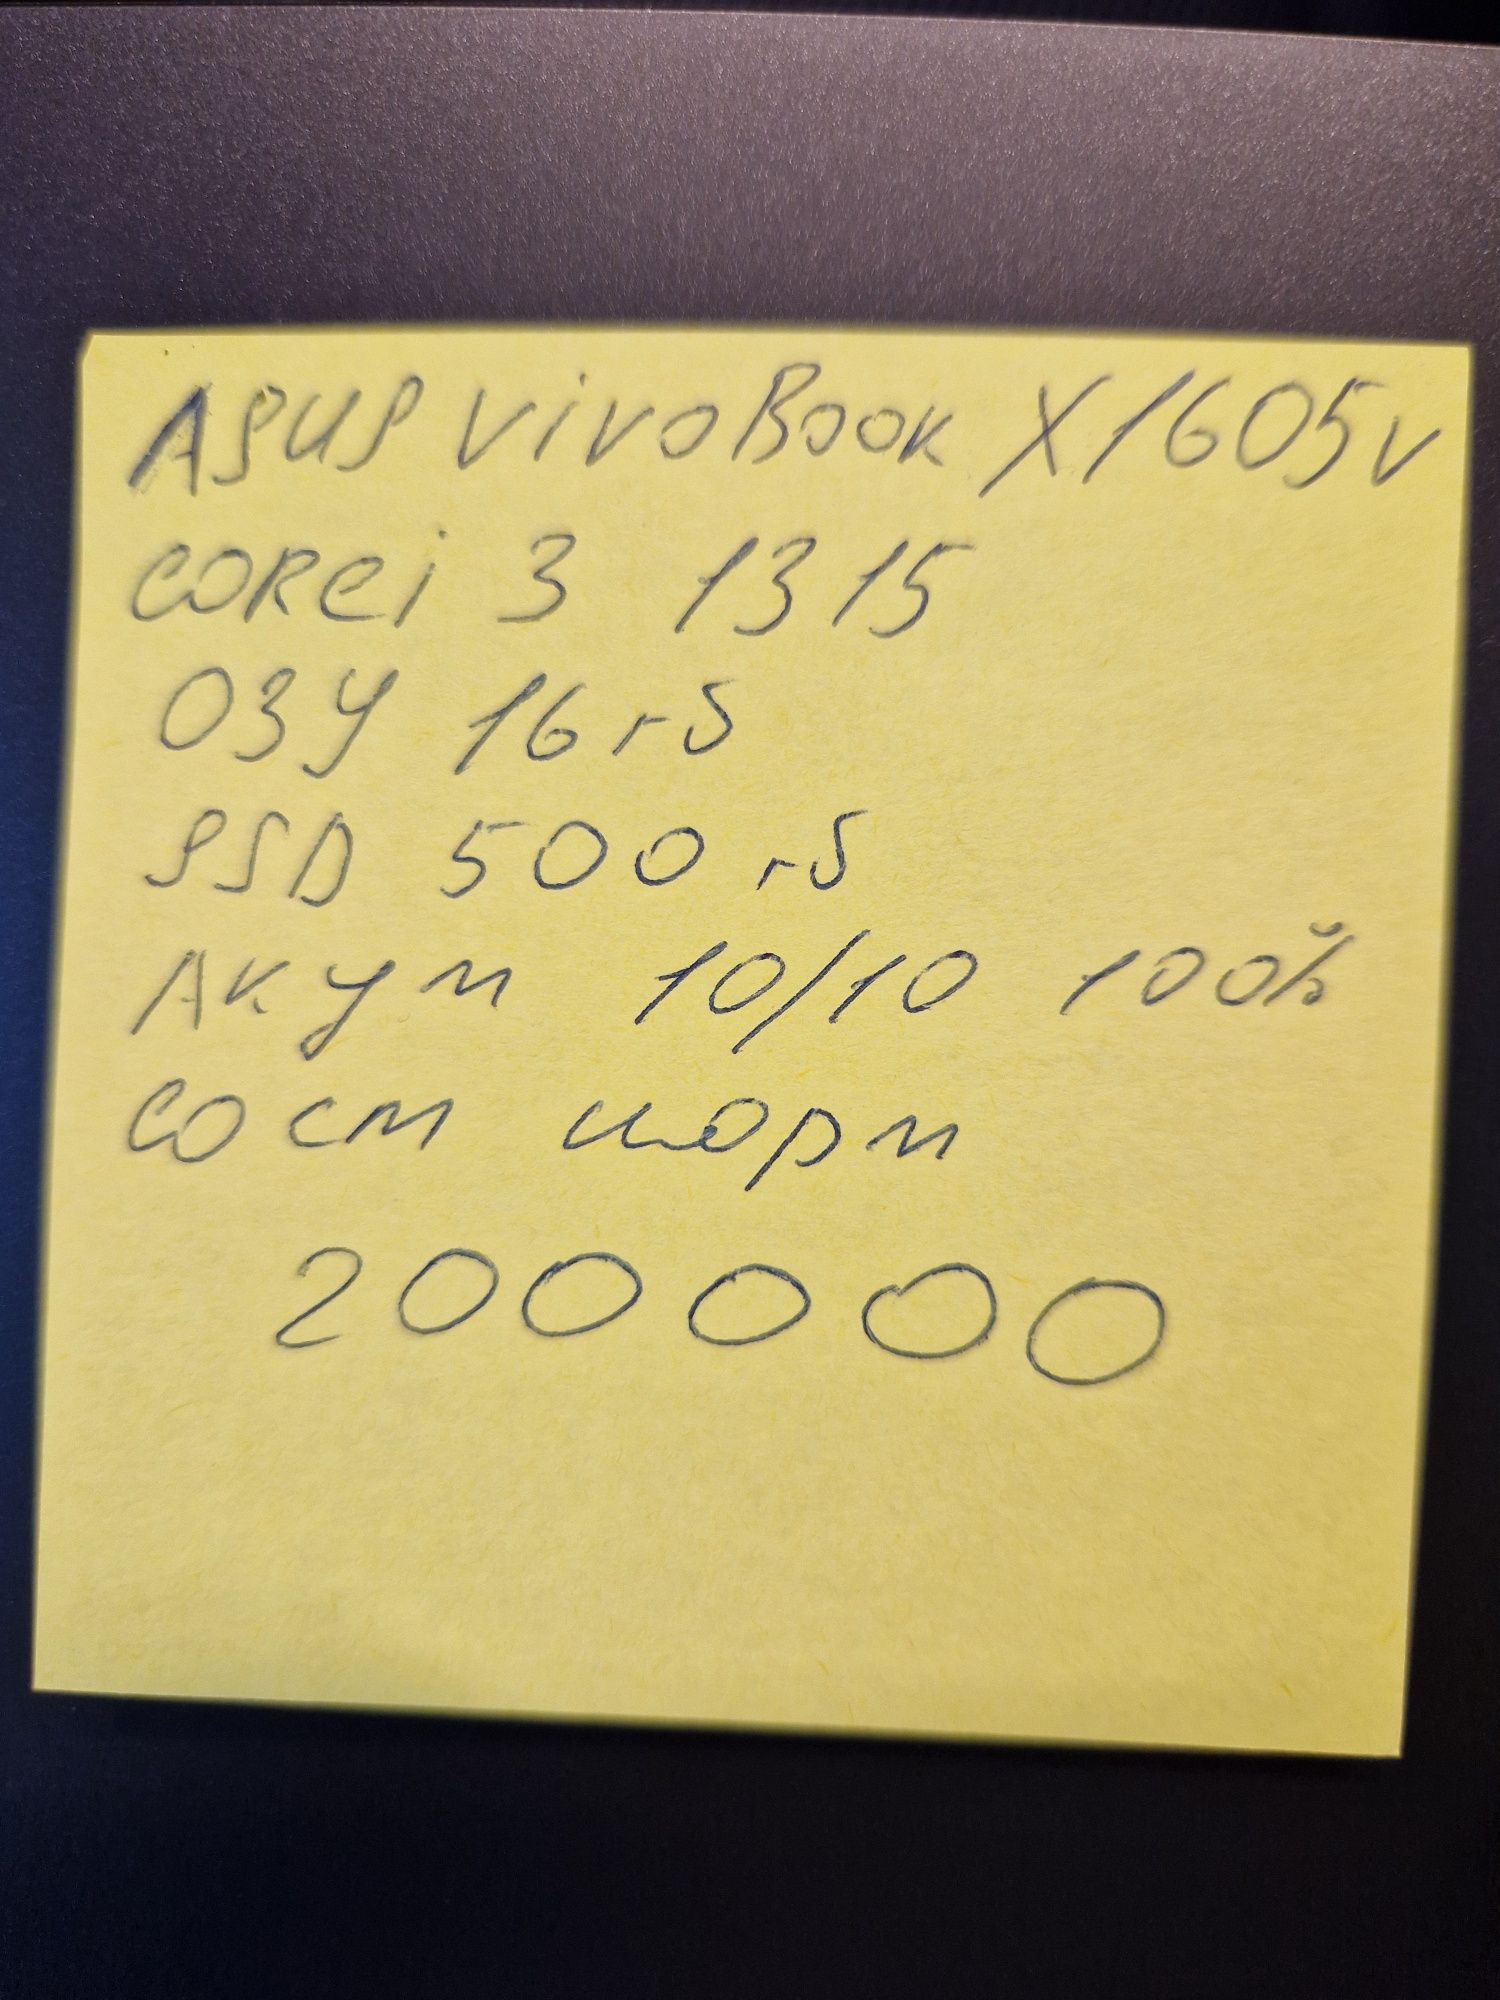 ASUS VivoBook X1605v
COREi 3 1315
ОЗУ 16 гб
SSD 500 гб
Акум 10/10 100%
сост норм
200000